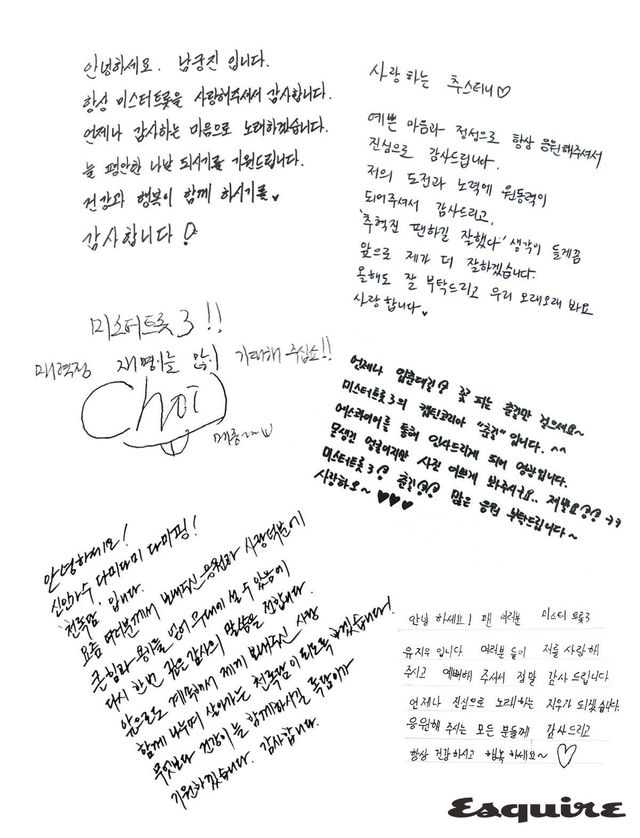 안녕하세요. 남궁진 입니다.
항상 미스터트롯을 사랑해주셔서 감사합니다.
언제나 감사하는 마음으로 노래하겠습니다.
늘 평안한 나날 되시기를 기원드립니다.
건강과 행복이 함께 하시기를♥
감사합니다!
사랑하는 추스티니♡
예쁜 마음과 정성으로 항상 응원해주셔서
진심으로 감사드립니다.
저의 도전과 노력에 원동력이
되어주셔서 감사드리고,
'추혁진 팬하길 잘했다' 생각이 들게끔
앞으로 제가 더 잘하겠습니다.
올해도 잘 부탁드리고 우리 오래오래 봐요
사랑합니다♥
미스터트롯3!!
매력쟁 재명이는 기대해 주십쇼!!
Choi
언제나 입춘대길 꽃 피는 춘길만 걸으세요~
미스터트롯3의 캡틴코리아 "춘길"입니다. ^^
에스콰이어를 통해 인사드리게 되어 영광입니다.
못생긴 얼굴이지만 사진 이쁘게 봐주시구요..
미스터트롯3 춘길 많은 응원 부탁드립니다~
사랑하오~ ♥♥♥
안녕하세요!
신인가수, 다미다미 다미핑!
'천록담' 입니다.
요즘 여러분께서 보내주신 응원과 사랑덕분에
큰 힘과 용기를 얻어 무대에 설 수 있음에
다시 한번 깊은 감사의 말씀을 전합니다.
앞으로도 계속해서 제게 보내주신 사랑
함께 나누며 살아가는 천록담이 되도록 하겠습니다!
무엇보다 건강이 늘 함께하시길 록담이가
기원하겠습니다. 감사합니다.
안녕 하세요! 팬 여러분 미스터 트롯3
유지우 입니다 여러분들이 저를 사랑해
주시고 예뻐해 주셔서 정말 감사 드립니다
언제나 진심으로 노래하는 지우가 되겠습니다.
응원해 주시는 모든 분들께 감사드리고
항상 건강하시고 행복 하세요~ ♡
Esquire